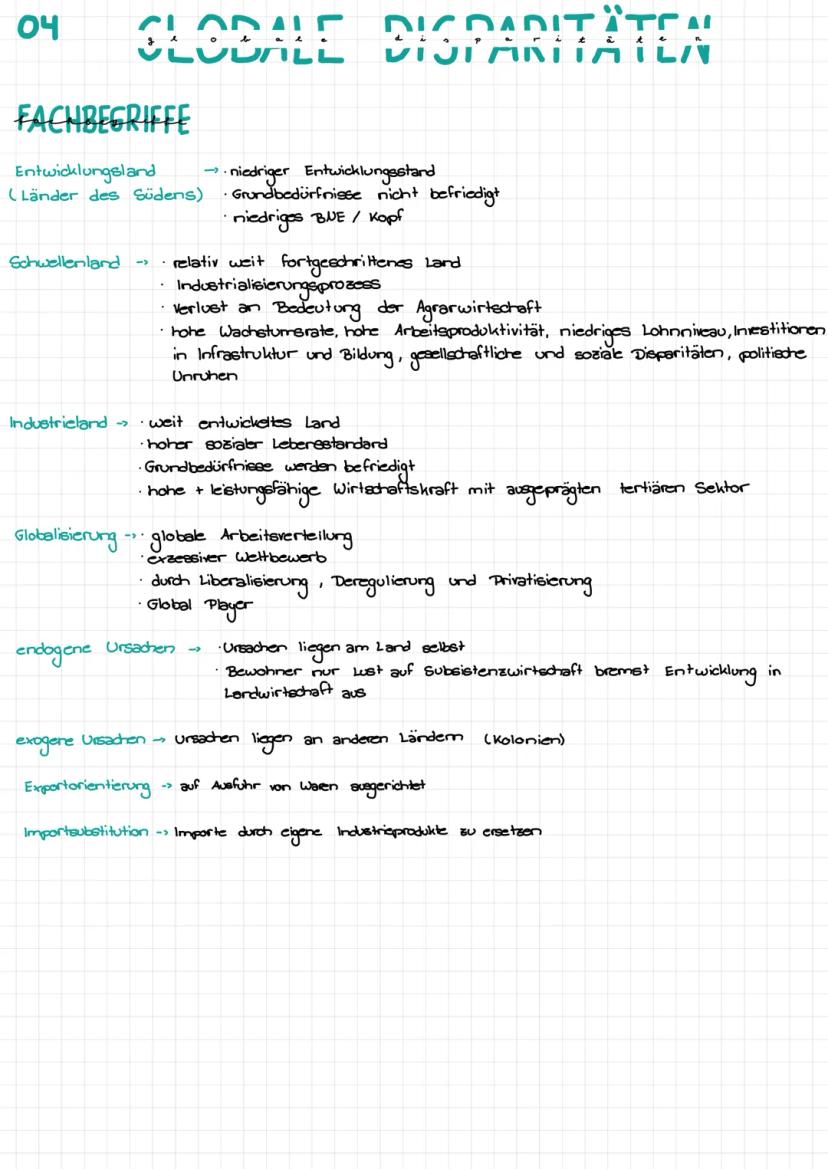 04 GLOBALE DISPARITÄTEN
globale disparitäten
FACHBEGRIFFE
fachbegriffe
Entwicklungsland → · niedriger Entwicklungsstand
(Länder des Südens) · Grundbedürfnisse nicht befriedigt
· niedriges BNE / Kopf
Schwellenland → · relativ weit fortgeschrittenes Land
· Industrialisierungsprozess
· Verlust an Bedeutung der Agrarwirtschaft
· hohe Wachstumsrate, hohe Arbeitsproduktivität, niedriges Lohnniveau, Investitionen
in Infrastruktur und Bildung, gesellschaftliche und soziale Disparitäten, politische
Unruhen
Industrieland → · weit entwickeltes Land
· hoher sozialer Lebensstandard
· Grundbedürfnisse werden befriedigt
· hohe + leistungsfähige Wirtschaftskraft mit ausgeprägten tertiären Sektor
Globalisierung → · globale Arbeitsverteilung
· exzessiver Wettbewerb
· durch Liberalisierung, Deregulierung und Privatisierung
· Global Player
endogene Ursachen → · Ursachen liegen am Land selbst
· Bewohner nur Lust auf Subsistenzwirtschaft bremst Entwicklung in
Landwirtschaft aus
exogene Ursachen → Ursachen liegen an anderen Ländern (Kolonien)
Exportorientierung → auf Ausfuhr von Waren ausgerichtet
Importsubstitution → Importe durch eigene Industrieprodukte zu ersetzen